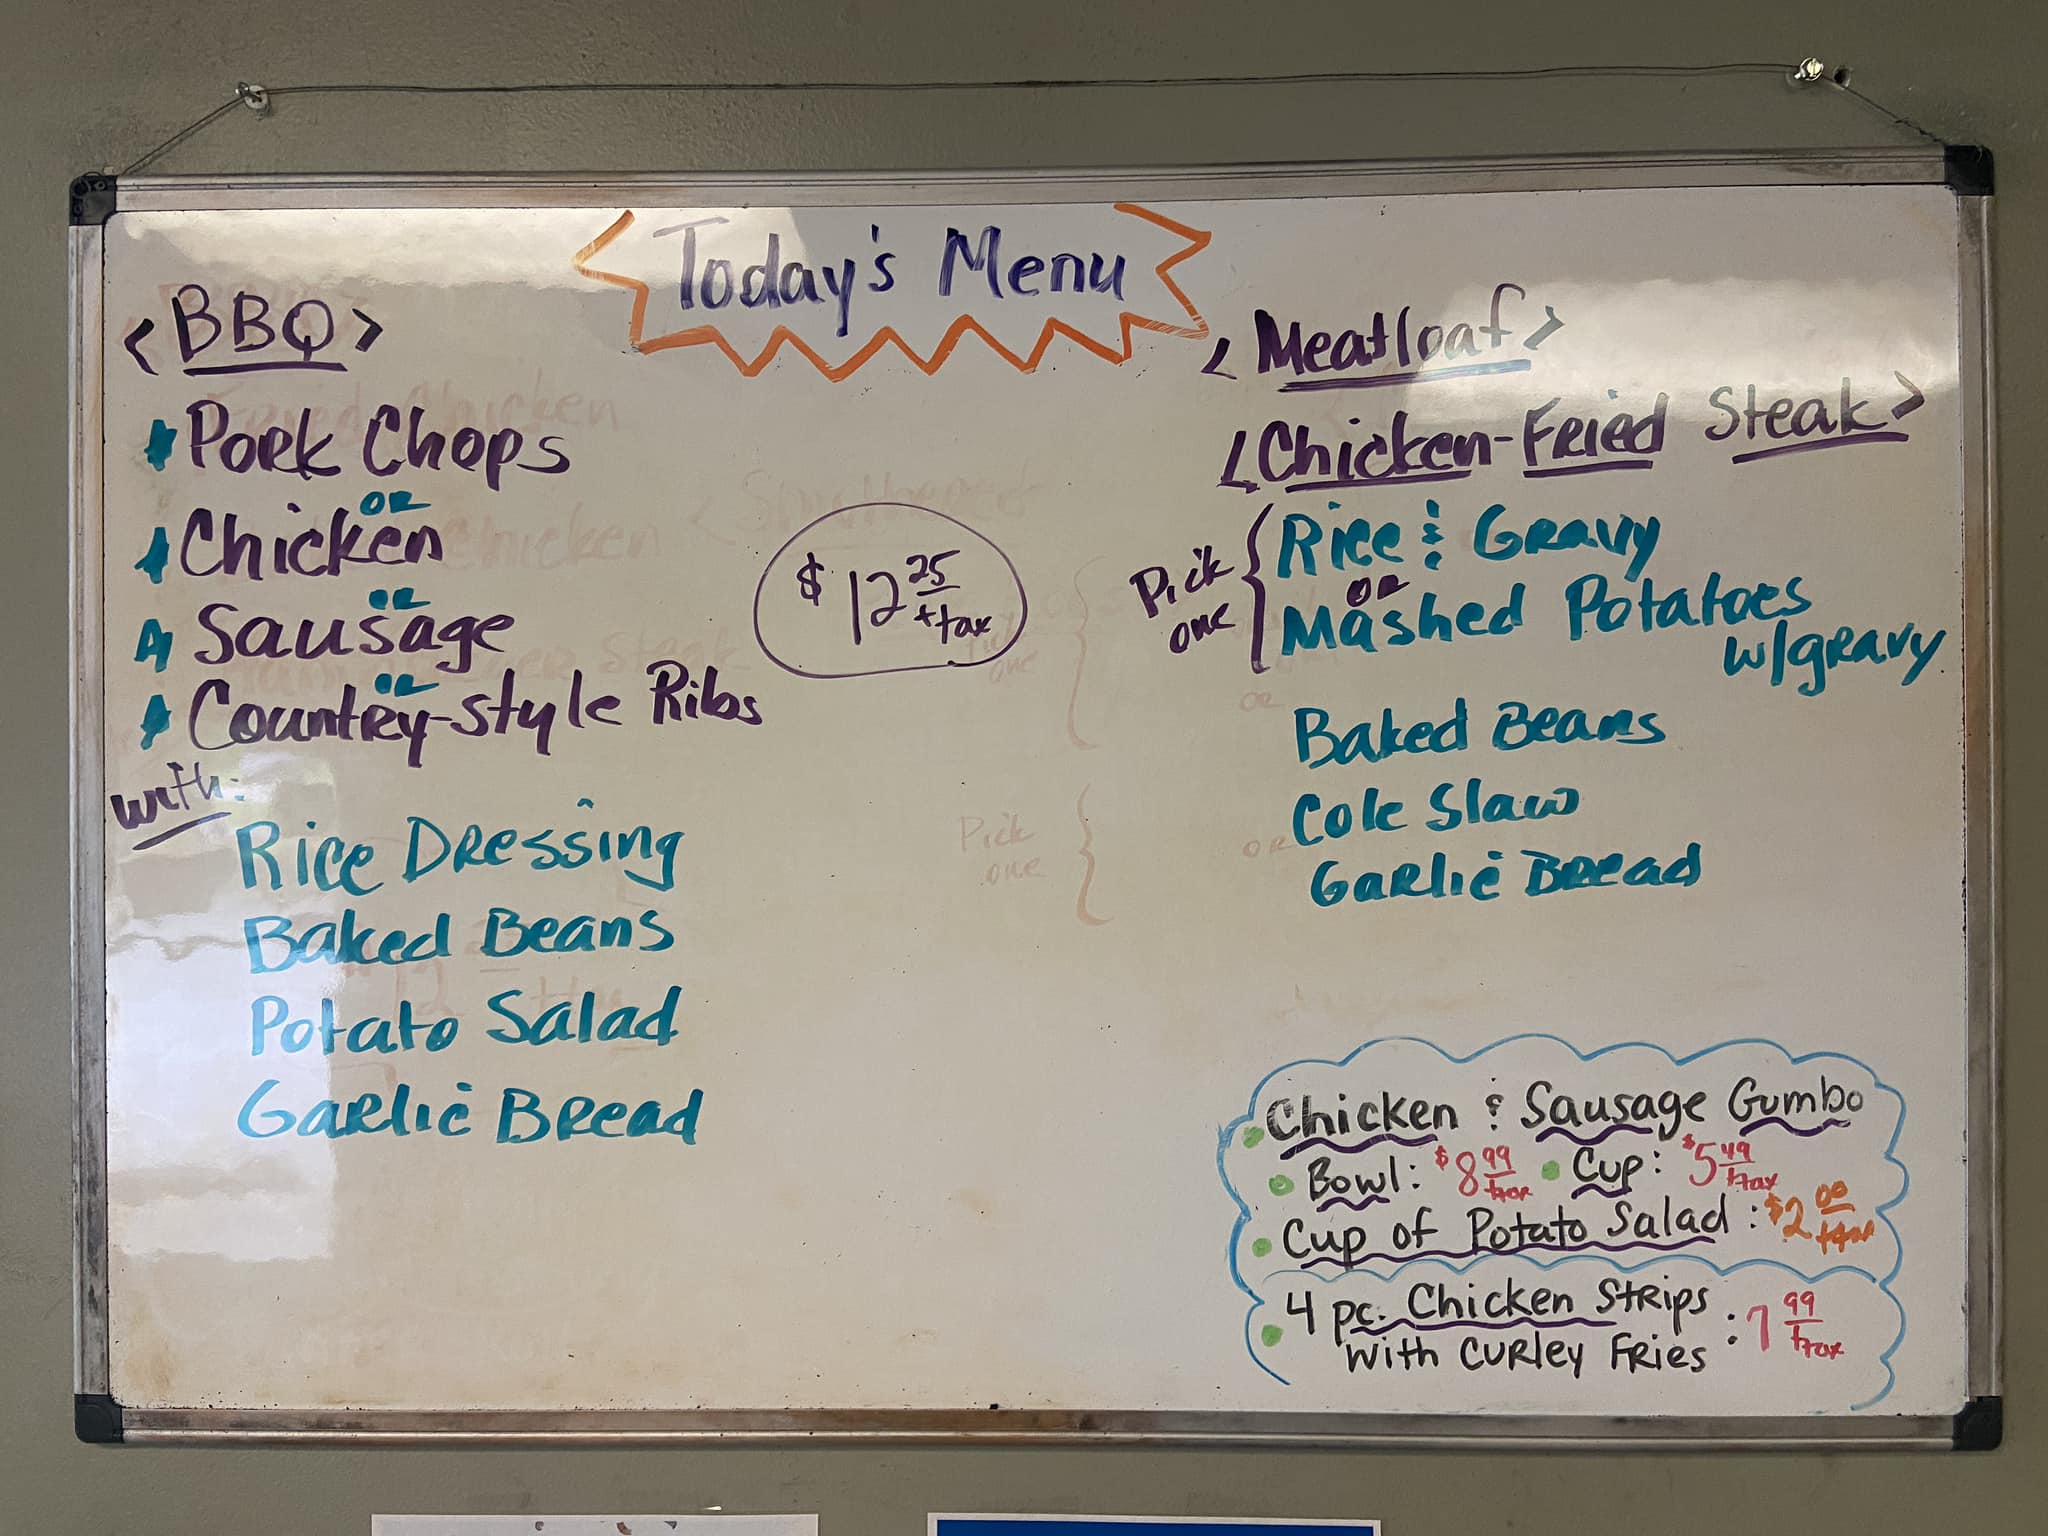 Today's Menu
<BBQ>
Pork Chops
or
Chicken
or
Sausage
or
Country-style Ribs
with:
Rice Dressing
Baked Beans
Potato Salad
Garlic Bread
$12.25
+tax
<Meatloaf>
<Chicken-Fried Steak>
Pick one { Rice & Gravy
or
Mashed Potatoes
w/gravy
Baked Beans
Cole Slaw
Garlic Bread
Chicken & Sausage Gumbo
Bowl: $8.99 +tax Cup: $5.49 +tax
Cup of Potato Salad: $2.00 +tax
4 pc. Chicken Strips
with Curley Fries : 7.99 +tax
Pick
one